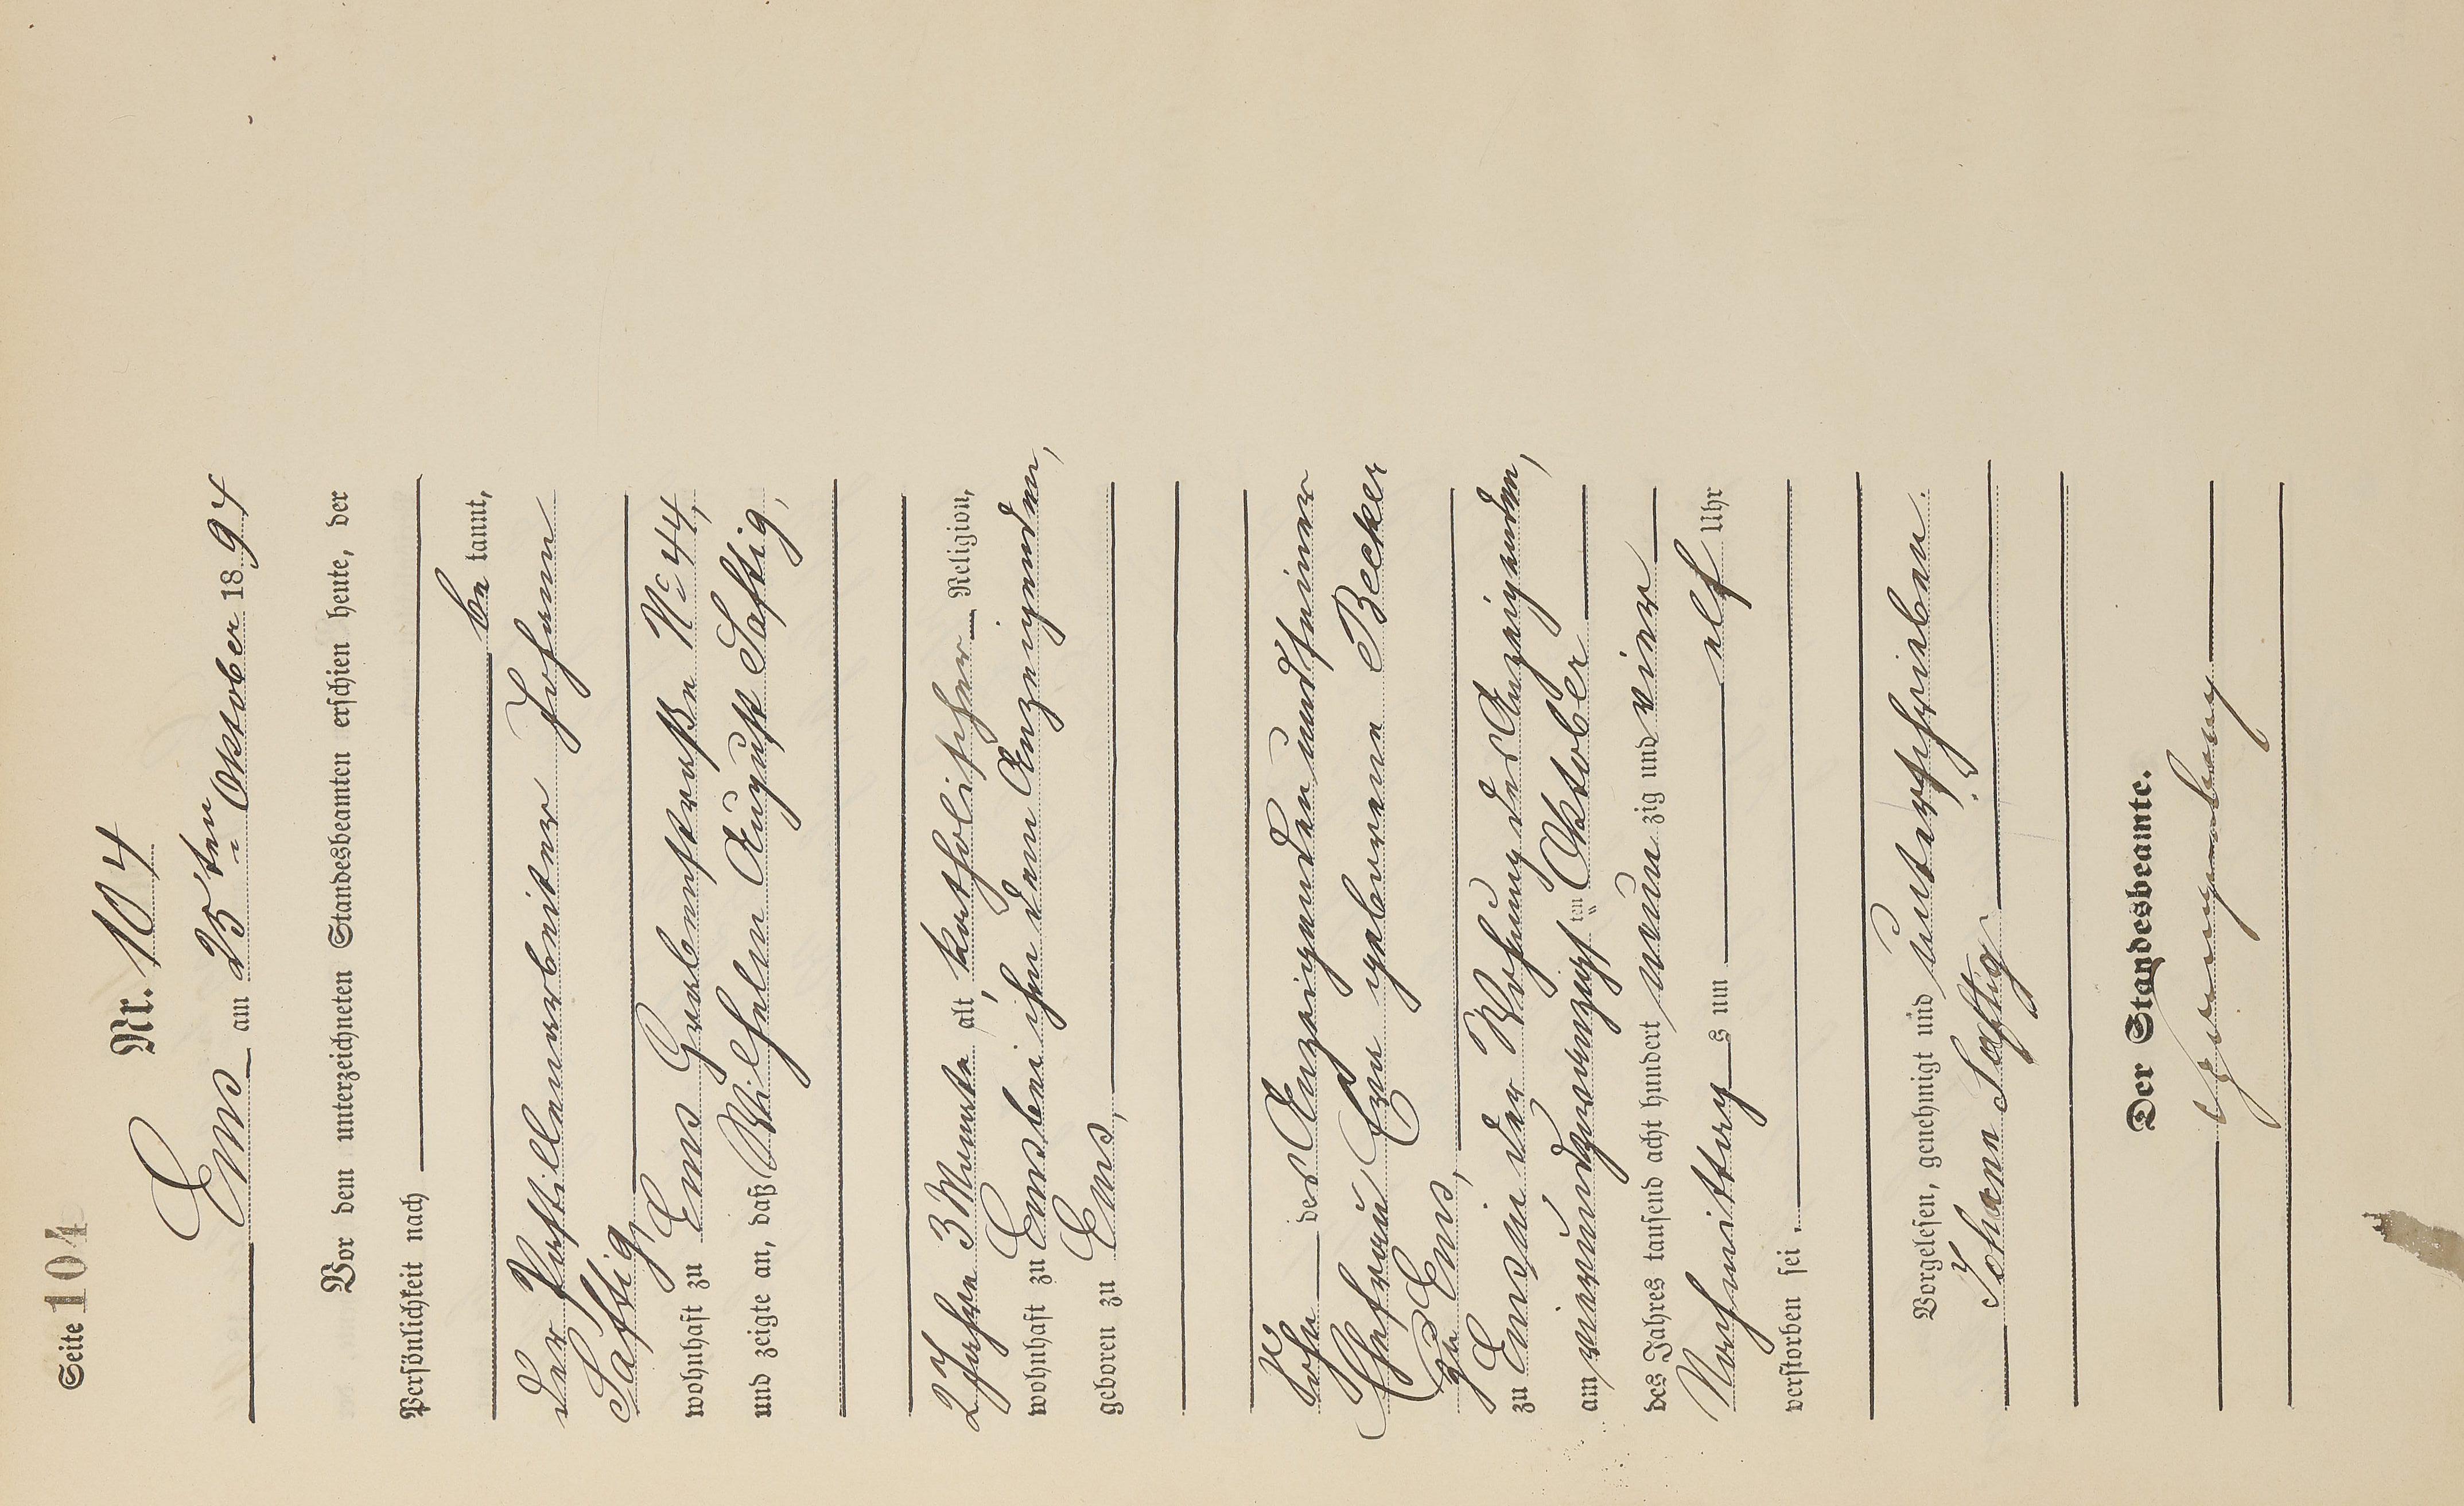 Seite 104
Nr. 104
Ems am 25ten Oktober 1894
Vor dem unterzeichneten Standesbeamten erschien heute, der
Persönlichkeit nach
be kannt,
der Pastillenarbeiter Johann
Saftig,
wohnhaft zu Ems Grabenstraße No 44,
und zeigte an, daß Wilhelm August Saftig,
2 Jahre 3 Monate alt, katholischer Religion,
wohnhaft zu Ems bei ihm dem Anzeigenden,
geboren zu Ems,
Sohn des Anzeigenden und seiner
Ehefrau Eva geborene Becker
zu Ems,
zu Ems, in der Wohnung des Anzeigenden,
am vierundzwanzigsten Oktober
des Jahres tausend acht hundert neun zig und vier
Nachmittags um elf Uhr
verstorben sei.
Vorgelesen, genehmigt und unterschrieben.
Johann Saftig
Der Standesbeamte.